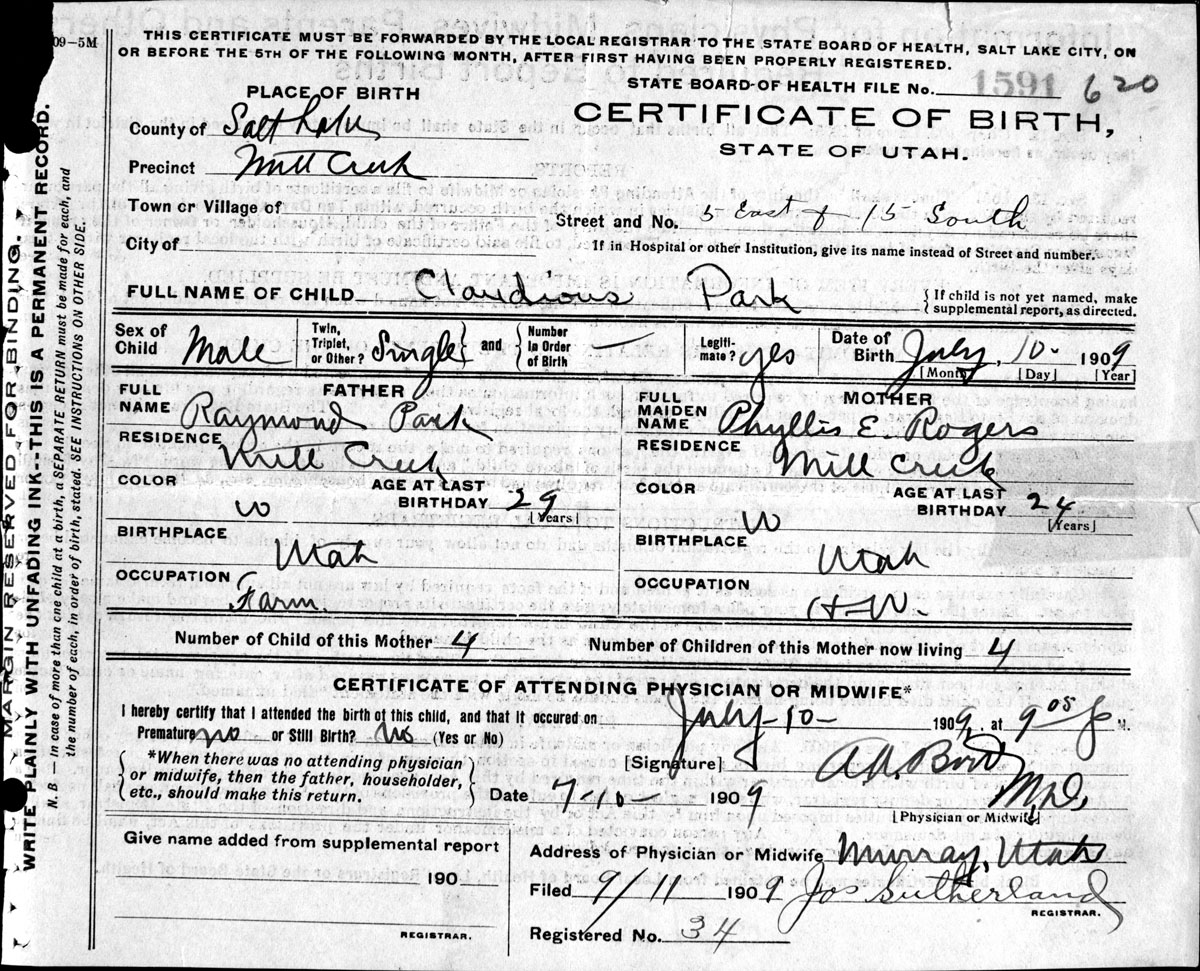 09-5M
THIS CERTIFICATE MUST BE FORWARDED BY THE LOCAL REGISTRAR TO THE STATE BOARD OF HEALTH, SALT LAKE CITY, ON
OR BEFORE THE 5TH OF THE FOLLOWING MONTH, AFTER FIRST HAVING BEEN PROPERLY REGISTERED.
STATE BOARD OF HEALTH FILE No. 1591 620
PLACE OF BIRTH
CERTIFICATE OF BIRTH,
STATE OF UTAH.
County of Salt Lake
Precinct Mill Creek
Town or Village of
Street and No. 5 East & 15 South
City of
If in Hospital or other Institution, give its name instead of Street and number.
FULL NAME OF CHILD Claudious Park { If child is not yet named, make
supplemental report, as directed.
Sex of Child Male
Twin, Triplet, or Other? Single } and { Number in Order of Birth —
Legiti-mate? yes
Date of Birth July 10 - 1909
[Month] [Day] [Year]
FATHER
FULL NAME Raymond Park
RESIDENCE Mill Creek
COLOR W
AGE AT LAST BIRTHDAY 29
[Years]
BIRTHPLACE Utah
OCCUPATION Farm.
MOTHER
FULL MAIDEN NAME Phyllis E. Rogers
RESIDENCE Mill Creek
COLOR W
AGE AT LAST BIRTHDAY 24
[Years]
BIRTHPLACE Utah
OCCUPATION H-W
Number of Child of this Mother 4
Number of Children of this Mother now living 4
CERTIFICATE OF ATTENDING PHYSICIAN OR MIDWIFE*
I hereby certify that I attended the birth of this child, and that it occured on July-10- 1909, at 9 05 P M.
Premature no or Still Birth? No (Yes or No)
{ *When there was no attending physician
or midwife, then the father, householder,
etc., should make this return. }
[Signature] M.D.
Date 7-10- 1909
[Physician or Midwife]
Give name added from supplemental report
190
REGISTRAR.
Address of Physician or Midwife Murray, Utah
Filed 9/11 1909 Jos Sutherland
REGISTRAR.
Registered No. 34
MARGIN RESERVED FOR BINDING
WRITE PLAINLY WITH UNFADING INK--THIS IS A PERMANENT RECORD.
N. B. — In case of more than one child at a birth, a SEPARATE RETURN must be made for each, and
the number of each, in order of birth, stated. SEE INSTRUCTIONS ON OTHER SIDE.